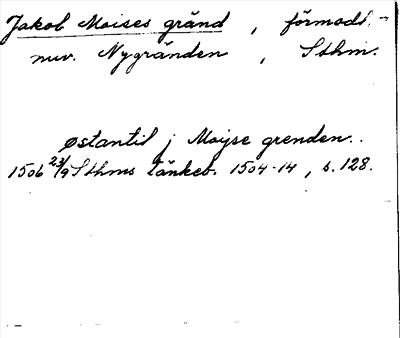 Jakob Moises gränd, förmodl.
nuv. Nygränden, Sthm.
østantil j Moyse grenden..
1506 23/9 Sthms tänkeb. 1504-14, s. 128.